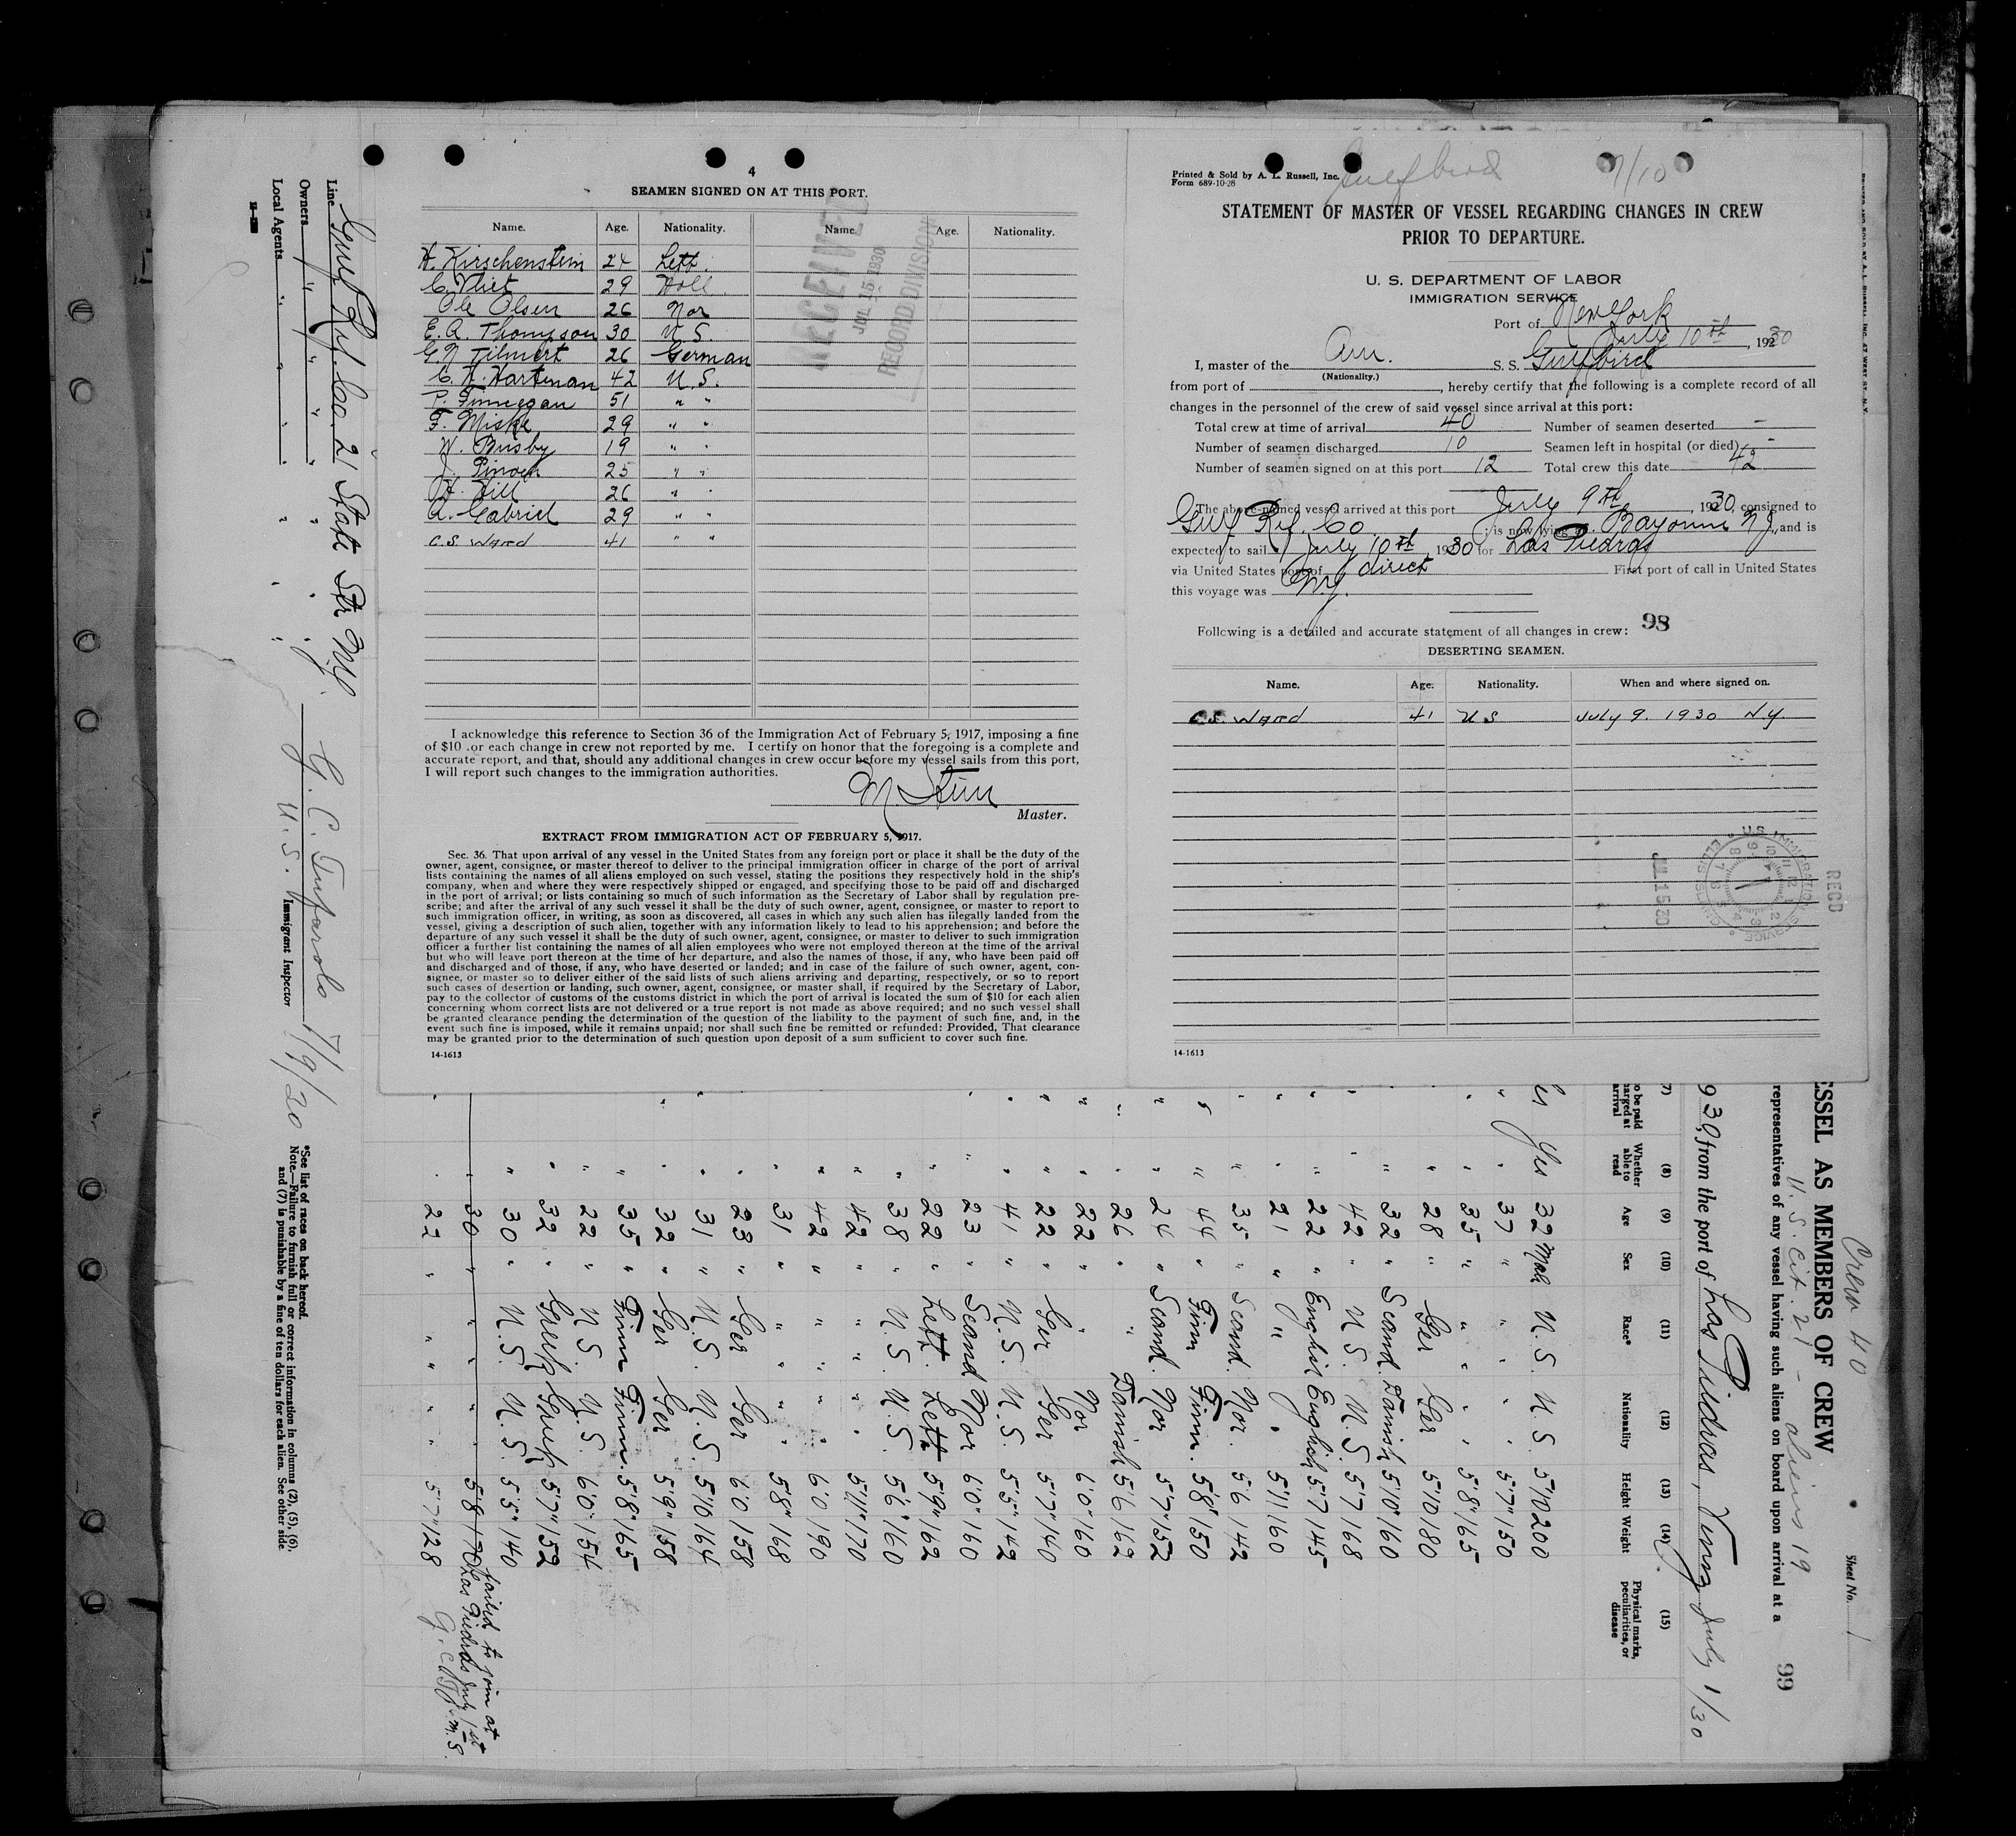 4
SEAMEN SIGNED ON AT THIS PORT.
Name. Age. Nationality. Name. Age. Nationality.
H. Kirschenstein 24 Lett.
C. Vliet 29 Holl.
Ole Olsen 26 Nor
E. A. Thompson 30 U. S.
26 German
C. H. Hartman 42 U. S.
P. Finnegan 51 " "
F. Miske 29 " "
W. Busby 19 " "
J. 25 " "
H. Hill 26 " "
A. Gabriel 29 " "
C.S. Ward 41 " "
RECEIVED
JUL 15 1930
RECORD DIVISION
I acknowledge this reference to Section 36 of the Immigration Act of February 5, 1917, imposing a fine
of $10 for each change in crew not reported by me. I certify on honor that the foregoing is a complete and
accurate report, and that, should any additional changes in crew occur before my vessel sails from this port,
I will report such changes to the immigration authorities.
Master.
EXTRACT FROM IMMIGRATION ACT OF FEBRUARY 5, 1917.
Sec. 36. That upon arrival of any vessel in the United States from any foreign port or place it shall be the duty of the
owner, agent, consignee, or master thereof to deliver to the principal immigration officer in charge of the port of arrival
lists containing the names of all aliens employed on such vessel, stating the positions they respectively hold in the ship's
company, when and where they were respectively shipped or engaged, and specifying those to be paid off and discharged
in the port of arrival; or lists containing so much of such information as the Secretary of Labor shall by regulation pre-
scribe; and after the arrival of any such vessel it shall be the duty of such owner, agent, consignee, or master to report to
such immigration officer, in writing, as soon as discovered, all cases in which any such alien has illegally landed from the
vessel, giving a description of such alien, together with any information likely to lead to his apprehension; and before the
departure of any such vessel it shall be the duty of such owner, agent, consignee, or master to deliver to such immigration
officer a further list containing the names of all alien employees who were not employed thereon at the time of the arrival
but who will leave port thereon at the time of her departure, and also the names of those, if any, who have been paid off
and discharged and of those, if any, who have deserted or landed; and in case of the failure of such owner, agent, con-
signee, or master so to deliver either of the said lists of such aliens arriving and departing, respectively, or so to report
such cases of desertion or landing, such owner, agent, consignee, or master shall, if required by the Secretary of Labor,
pay to the collector of customs of the customs district in which the port of arrival is located the sum of $10 for each alien
concerning whom correct lists are not delivered or a true report is not made as above required; and no such vessel shall
be granted clearance pending the determination of the question of the liability to the payment of such fine, and, in the
event such fine is imposed, while it remains unpaid; nor shall such fine be remitted or refunded: Provided, That clearance
may be granted prior to the determination of such question upon deposit of a sum sufficient to cover such fine.
14-1613
Gulfbird 7/10
Printed & Sold by A. L. Russell, Inc.
Form 689-10-28
STATEMENT OF MASTER OF VESSEL REGARDING CHANGES IN CREW
PRIOR TO DEPARTURE.
U. S. DEPARTMENT OF LABOR
IMMIGRATION SERVICE
Port of New York
July 10th, 1930
I, master of the Am. S. S. Gulfbird
(Nationality.)
from port of , hereby certify that the following is a complete record of all
changes in the personnel of the crew of said vessel since arrival at this port:
Total crew at time of arrival 40 Number of seamen deserted -
Number of seamen discharged 10 Seamen left in hospital (or died) -
Number of seamen signed on at this port 12 Total crew this date 42
The above-named vessel arrived at this port July 9th, 1930, consigned to
Gulf Ref. Co. ; is now lying Bayonne N J, and is
expected to sail July 10th, 1930 for Las Piedras
via United States port of direct First port of call in United States
this voyage was N.Y.
Following is a detailed and accurate statement of all changes in crew: 98
DESERTING SEAMEN.
Name. Age. Nationality. When and where signed on.
C.S. Ward 41 U S July 9. 1930 N.Y.
REC'D
U.S. IMMIGRATION SERVICE
14-1613
Line Gulf Ref. Co. 21 State Str N.Y.
Owners " " " "
Local Agents " " " "
G. C. Tufarolo 7/9/30
U. S. Immigrant Inspector
*See list of races on back hereof.
Note.—Failure to furnish full or correct information in columns (2), (5), (6),
and (7) is punishable by a fine of ten dollars for each alien. See other side
Crew 40
Sheet No. 1
ESSEL AS MEMBERS OF CREW
U. S. Cit. 21 - aliens 19
representatives of any vessel having such aliens on board upon arrival at a
99
930, from the port of Las Piedras, Venz July 1/30
(7) (8) (9) (10) (11) (12) (13) (14) (15)
o be paid
harged at
arrival
Whether able to read
Age
Sex
Race*
Nationality
Height
Weight
Physical marks, peculiarities, or disease
Yes 32 Male U. S. U. S. 5'10 200
" 37 " " " 5'7" 150
" 35 " " " 5'8" 165
" 28 " Ger Ger 5'10 180
" 32 " Scand. Danish 5'10" 160
" 42 " U. S. U. S. 5'7 168
" 22 " English English 5'7 145
" 21 " " " 5'11 160
" 35 " Scand. Nor. 5'6 142
" 44 " Finn Finn. 5'8" 150
" 24 " Scand. Nor 5'7" 152
" 26 " " Danish 5'6 162
" 22 " " Nor 6'0" 160
" 22 " Ger Ger 5'7" 140
" 41 " U. S. U. S. 5'5" 142
" 23 " Scand Nor 6'0" 160
" 22 " Lett. Lett 5'9" 162
" 38 " U. S. U. S. 5'6" 160
" 42 " " " 5'11" 170
" 42 " " " 6'0 190
" 31 " " " 5'8" 168
" 23 " Ger Ger 6'0 158
" 31 " U. S. U. S. 5'10 164
" 32 " Ger Ger 5'9" 158
" 35 " Finn Finn. 5'8" 165
" 22 " U S. U. S. 6'0" 154
" 32 " Greek Greek 5'7" 152
" 30 " U. S. U. S. 5'5" 140
" 30 " " " 5'8 170 failed to join at Las Piedras July 1st
" 22 " " " 5'7" 128